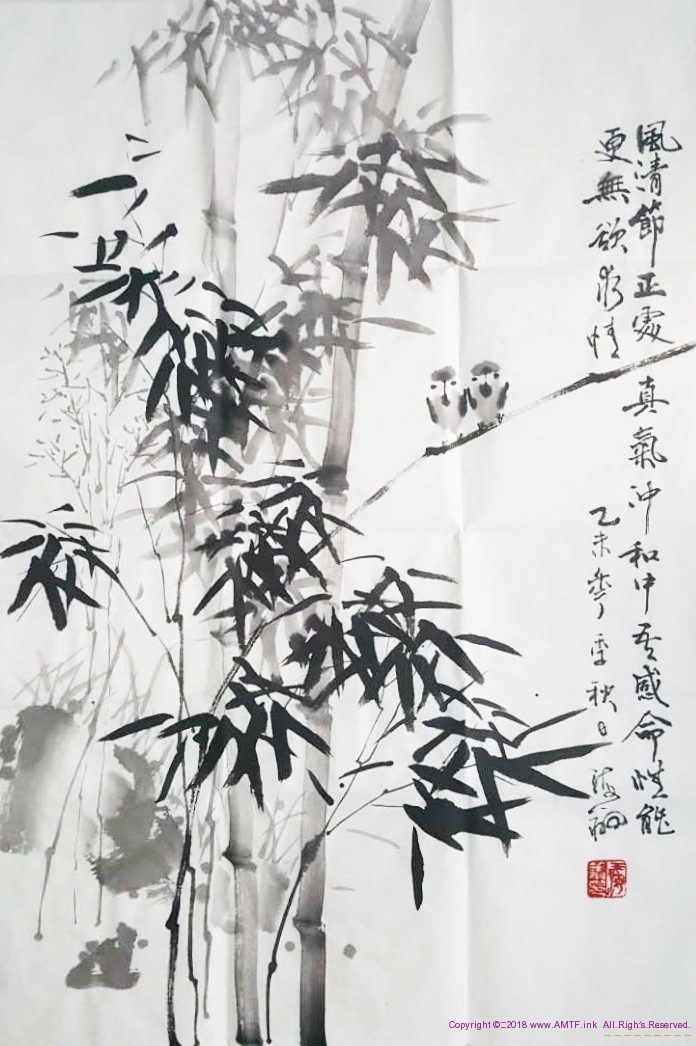 風清節正處 真氣沖和中 吾感命性能
更無欲求情
乙未年季秋日
Copyright ©2018 www.AMTF.ink All.Right's.Reserved.